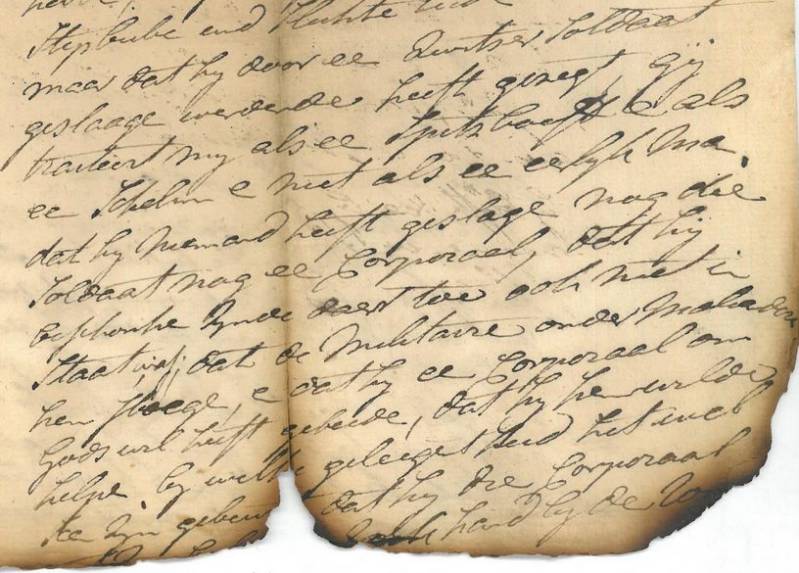 Spitsbube und slechte
maar dat hij door ee duitser Soldaat
geslaage werdende heeft gezegt, gij
tracteert mij als ee Spitsboef e als
ee Schelm e niet als ee eerlijk Ma.
dat hij niemand heeft geslage nog die
Soldaat nog ee Corporaal, dat hij
beschonke zijnde daer toe ook niet in
Staat was; dat de Militaire onder malcander
hem sloege, e dat hij ee Corporaal om
Gods wil heeft gebeede, dat hij hem wilde
helpe. bij welke geleegentheid het wel
ka zijn gebeurt dat hij die Corporaal
hand bij de